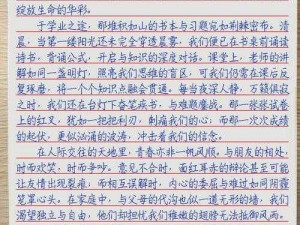 绽放生命的华彩。
于学业之途，那堆积如山的书本与习题宛如荆棘密布。清
晨，当第一缕阳光还未完全穿透晨雾，我们便已在书桌前诵读
诗书，背诵公式，开启与知识的深度对话。课堂上，老师的讲
解如同一盏明灯，照亮我们思维的盲区，可我们仍需在课后反
复琢磨，将一个个知识点融会贯通。每当夜深人静，万籁俱寂
之时，我们还在台灯下奋笔疾书，与难题鏖战。那一张张试卷
上的红叉，犹如一把把利刃，刺痛我们的心；而那一次次成绩
的起伏，更似汹涌的波涛，冲击着我们的信念。
在人际交往的天地里，青春亦非一帆风顺。与朋友的相处，
时而欢笑，时而争吵。意见不合时，面红耳赤的辩论甚至可能
让友情出现裂痕；而相互误解时，内心的委屈与难过如同阴霾
笼罩心头。在家庭中，与父母的代沟也似一道无形的墙。我们
渴望独立与自由，他们却担忧我们稚嫩的翅膀无法抵御风雨。